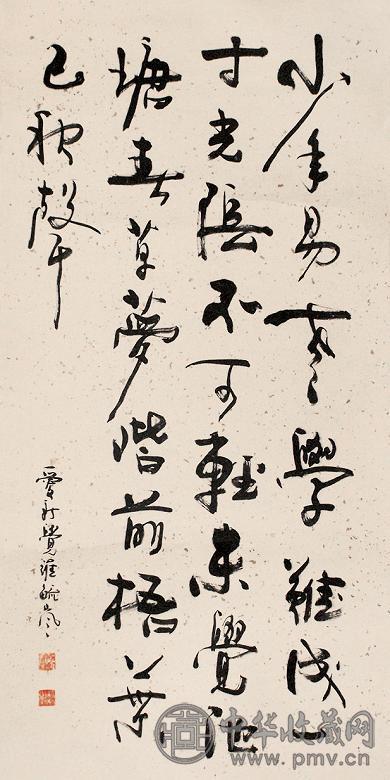 少年易老學難成一
寸光陰不可輕未覺池
塘春草夢階前梧葉
已秋聲
愛新覺羅毓嵐
中华收藏网
www.pmv.cn